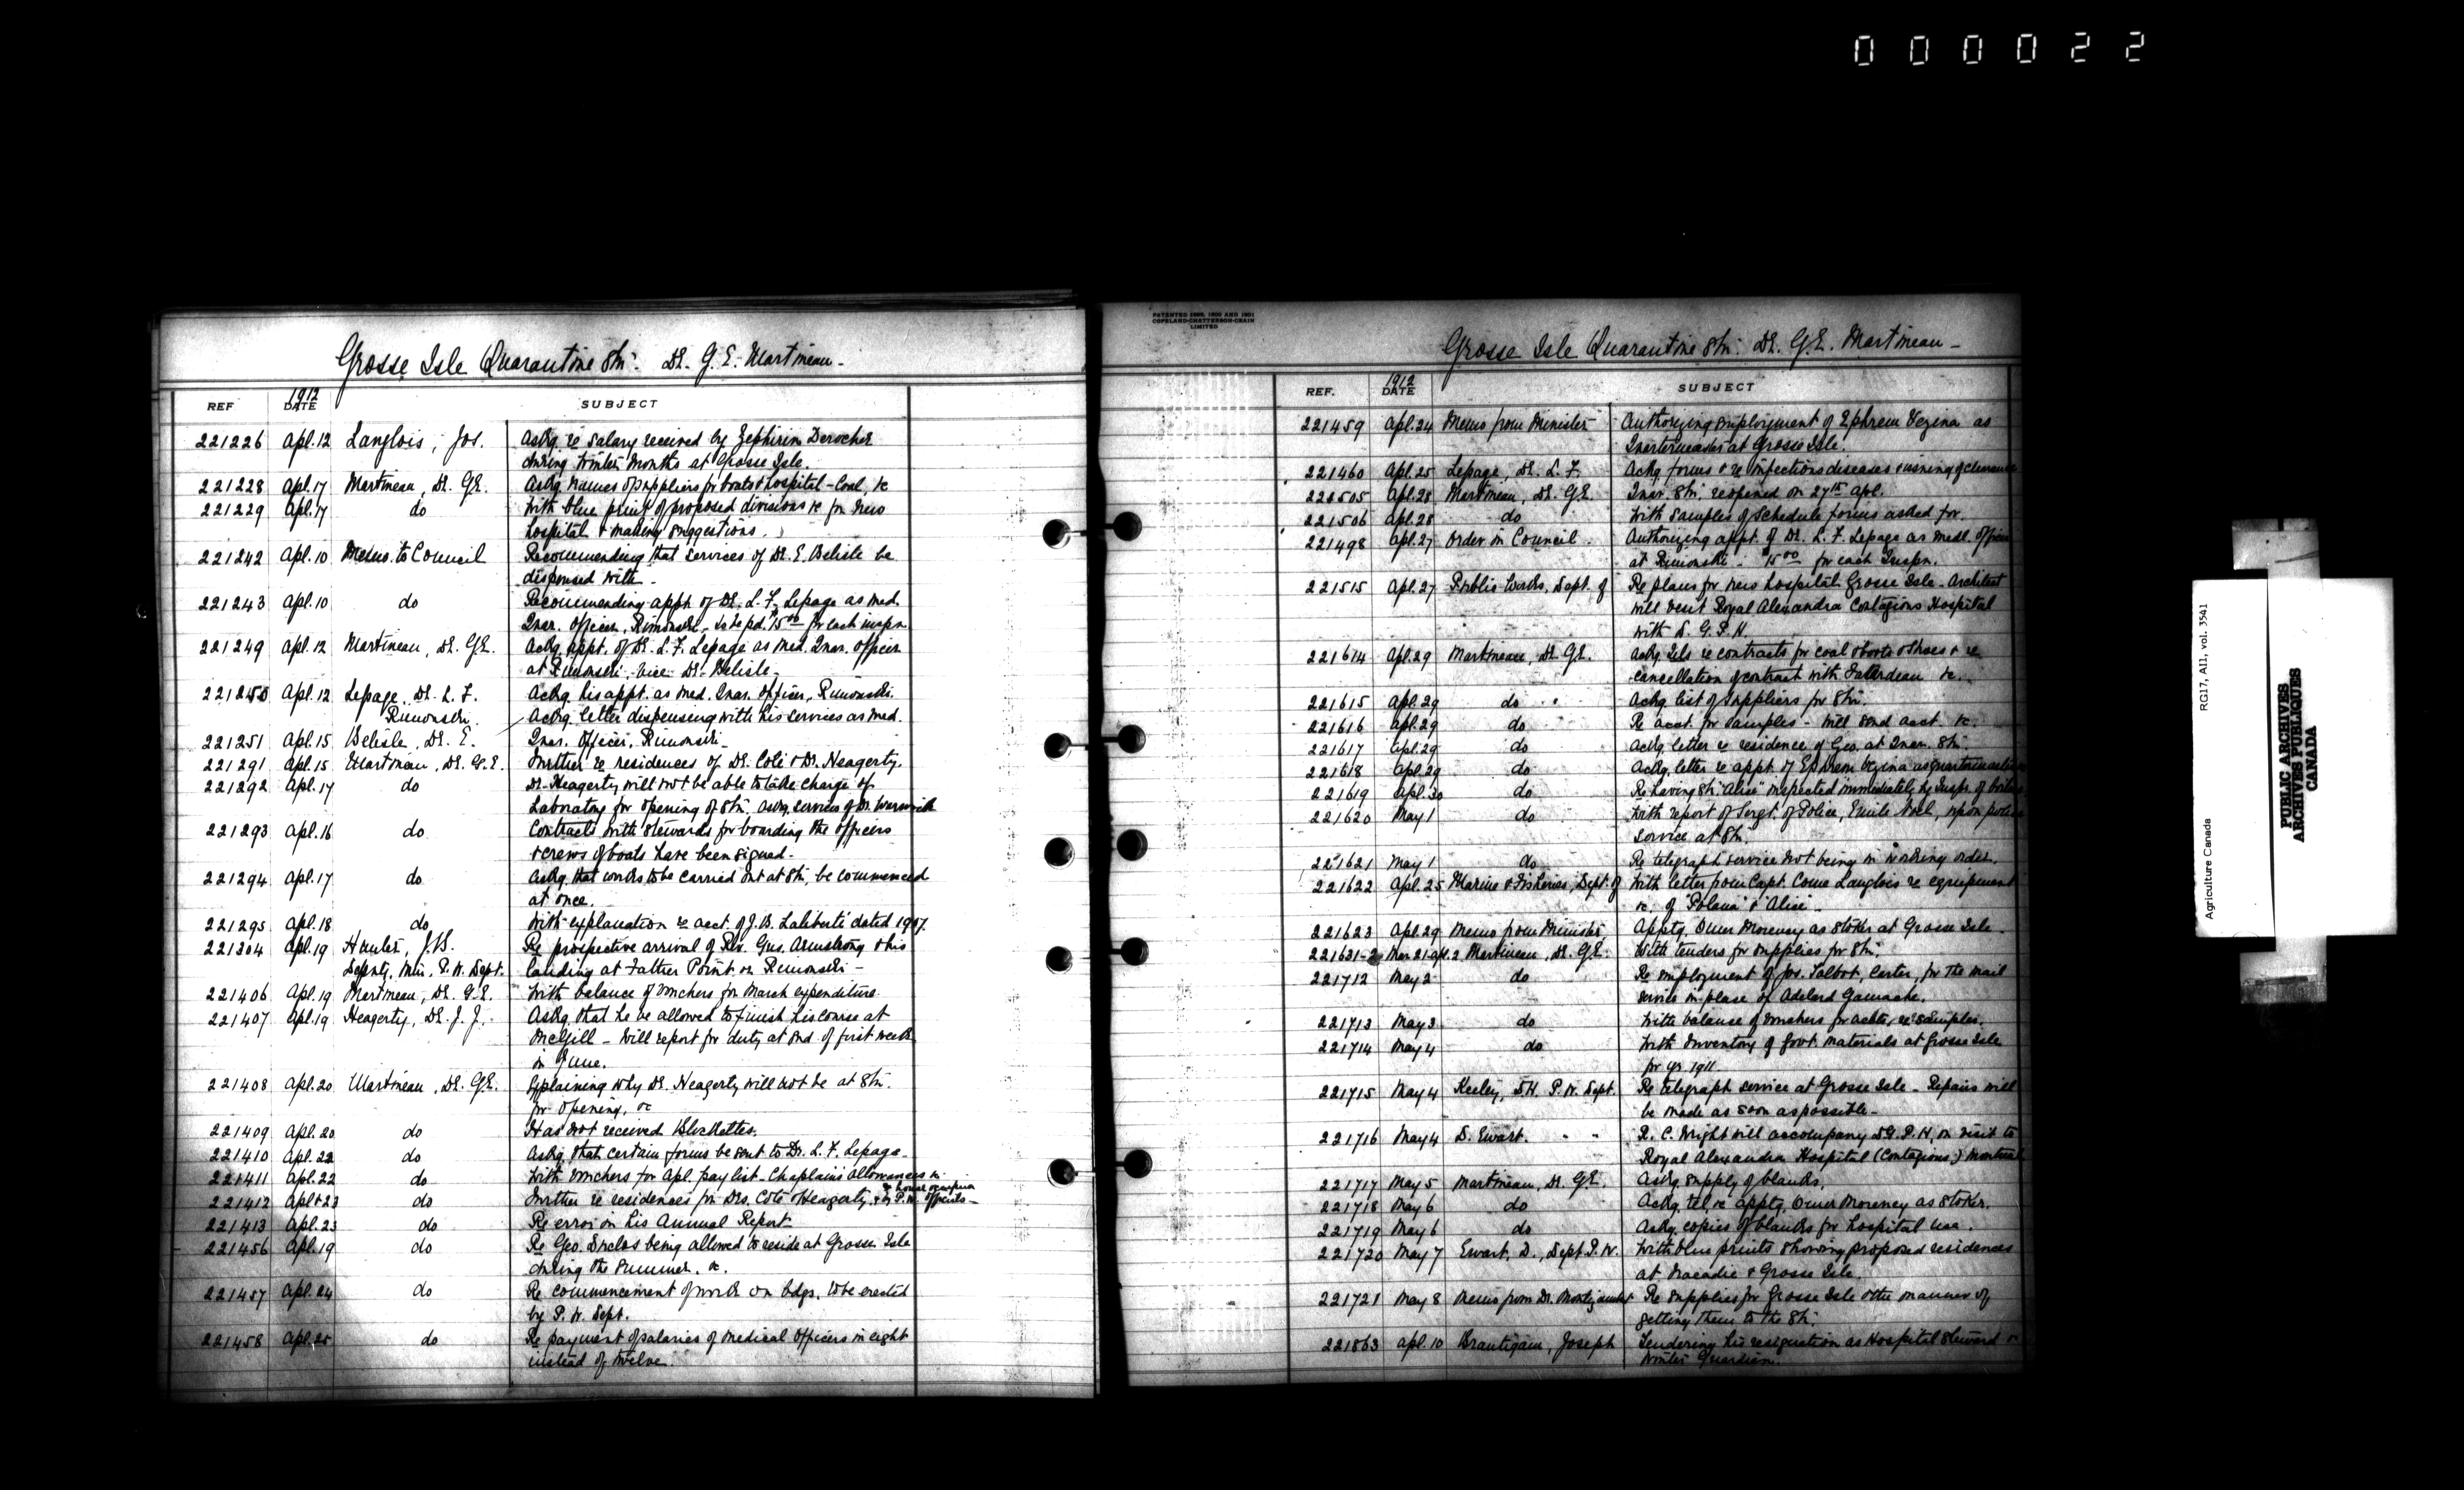 000022
Grosse Isle Quarantine Stn. Dr. G. E. Martineau -
REF 1912 DATE SUBJECT
221226 Apl. 12 Langlois, Jos. Askg. re salary received by Zephirin Derocher
during winter months at Grosse Isle.
221228 Apl. 17 Martineau, Dr. G.E. Askg. names of suppliers for boats & hospital - Coal, &c
221229 Apl. 17 do With blue print of proposed divisions &c for new
hospital & making suggestions.
221242 Apl. 10 Memo. to Council Recommending that services of Dr. E. Belisle be
dispensed with -
221243 Apl. 10 do Recommending appt. of Dr. L. F. Lepage as med.
Quar. Officer, Rimouski - to be pd. $15.00 for each inspn
221249 Apl. 12 Martineau, Dr. G.E. Ackg. appt. of Dr. L. F. Lepage as Med. Quar. Officer
at Rimouski, vice Dr. Belisle -
221250 Apl. 12 Lepage, Dr. L. F. Ackg. his appt. as Med. Quar. Officer, Rimouski.
Rimouski. Ackg. letter dispensing with his services as Med.
221251 Apl. 15 Belisle, Dr. E. Quar. Officer, Rimouski -
221291 Apl. 15 Martineau, Dr. G.E. Further re residences of Dr. Coté & Dr. Heagerty.
221292 Apl. 17 do Dr. Heagerty will not be able to take charge of
Laboratory for opening of Stn. Askg. services of Dr. Warwick
221293 Apl. 16 do Contracts with stewards for boarding the officers
& crews of boats have been signed -
221294 Apl. 17 do Askg. that works to be carried out at Stn. be commenced
at once.
221295 Apl. 18 do With explanation re acct. of J. B. Laliberté dated 1907.
221304 Apl. 19 Hunter, J.B. Re prospective arrival of Rev. Gus. Armstrong & his
Deputy, Min. P. W. Dept. landing at Father Point or Rimouski -
221406 Apl. 19 Martineau, Dr. G.E. With balance of vouchers for March expenditure.
221407 Apl. 19 Heagerty, Dr. J. J. Askg. that he be allowed to finish his course at
McGill - Will report for duty at end of first week
in June.
221408 Apl. 20 Martineau, Dr. G.E. Explaining why Dr. Heagerty will not be at Stn.
for opening, &c
221409 Apl. 20 do Has not received Blickettes.
221410 Apl. 22 do Askg. that certain forms be sent to Dr. L. F. Lepage -
221411 Apl. 22 do With vouchers for Apl. pay list - Chaplain's allowances
221412 Apl. 23 do Further re residences for Drs. Coté & Heagerty, & by P.W. officers -
221413 Apl. 23 do Re error in his Annual Report
221456 Apl. 19 do Re Geo. being allowed to reside at Grosse Isle
during the summer, &c.
221457 Apl. 24 do Re commencement of work on bdgs. to be erected
by P. W. Dept.
221458 Apl. 25 do Re payment of salaries of medical officers in eight
instead of twelve.
PATENTED 1896, 1900 AND 1901
COPELAND-CHATTERSON-CRAIN
LIMITED
Grosse Isle Quarantine Stn. Dr. G.E. Martineau -
REF. 1912 DATE SUBJECT
221459 Apl. 24 Memo from Minister Authorizing employment of Ephrem Vezina as
Quartermaster at Grosse Isle.
221460 Apl. 25 Lepage, Dr. L. F. Ackg. forms & re infectious diseases & issuing of clearance
221505 Apl. 28 Martineau, Dr. G.E. Quar. Stn. reopened on 27th Apl.
221506 Apl. 28 do With samples of schedule forms asked for.
221498 Apl. 27 Order in Council. Authorizing appt. of Dr. L. F. Lepage as medl. officer
at Rimouski - $15.00 for each Inspn.
221515 Apl. 27 Public Works, Dept. of Re plans for new hospital Grosse Isle - Architect
will visit Royal Alexandra Contagious Hospital
with D. G. P. H.
221614 Apl. 29 Martineau, Dr. G.E. Ackg. tels re contracts for coal & boots & shoes & re
cancellation of contract with &c.
221615 Apl. 29 do Ackg. list of suppliers for Stn.
221616 Apl. 29 do Re acct. for samples - will send acct. &c.
221617 Apl. 29 do Ackg. letter re residence of Geo. at Quar. Stn.
221618 Apl. 29 do Ackg. letter re appt. of Ephrem Vezina as quartermaster
221619 Apl. 30 do Re having Str. "Alice" inspected immediately by Inspr. of boilers
221620 May 1 do With report of Sergt. of Police, Emile Noël, upon police
service at Stn.
221621 May 1 do Re telegraph service not being in working order.
221622 Apl. 25 Marine & Fisheries, Dept. of With letter from Capt. Come Langlois re equipment
&c. of "Polana" & "Alice" -
221623 Apl. 29 Memo from Minister Apptg. Omer Morency as stoker at Grosse Isle -
221631-2 Mar. 21-Apl. 2 Martineau, Dr. G.E. With tenders for supplies for Stn.
221712 May 2 do Re employment of Jos. Talbot, Carter, for the mail
service in place of Adelard Gamache.
221713 May 3 do With balance of vouchers for accts., re samples.
221714 May 4 do With Inventory of Govt. materials at Grosse Isle
for yr. 1911
221715 May 4 Keeley, D.H. P. W. Dept. Re telegraph service at Grosse Isle - Repairs will
be made as soon as possible -
221716 May 4 D. Ewart. " " R. C. Wright will accompany D.G.P.H. on visit to
Royal Alexandra Hospital (Contagious) Montreal
221717 May 5 Martineau, Dr. G.E. Askg. supply of blanks.
221718 May 6 do Ackg. tel. re apptg. Omer Morency as stoker.
221719 May 6 do Askg. copies of blanks for hospital use.
221720 May 7 Ewart, D., Dept. P. W. With blue prints showing proposed residences
at Tracadie & Grosse Isle.
221721 May 8 Memo from Dr. Montizambert Re supplies for Grosse Isle & the manner of
getting them to the Stn.
221863 Apl. 10 Brautigam, Joseph Tendering his resignation as Hospital Steward &
Winter Guardian.
Agriculture Canada RG17, A11, vol. 3541
PUBLIC ARCHIVES
ARCHIVES PUBLIQUES
CANADA